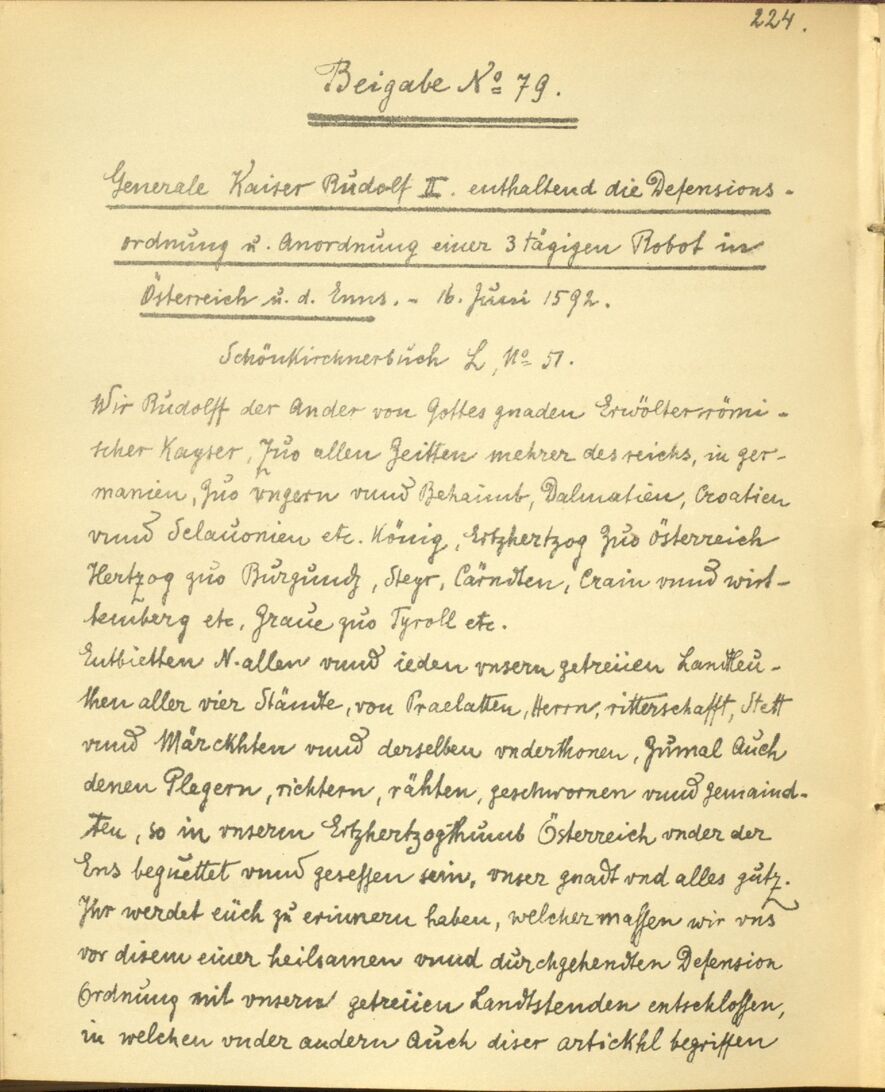 224.
Beigabe No 79.
Generale Kaiser Rudolf II. enthaltend die Defensions-
ordnung u. Anordnung einer 3 tägigen Robot in
Österreich u. d. Enns. - 16. Juni 1592.
Schönkirchnerbuch L, No 51.
Wir Rudolff der Ander von Gottes gnaden Erwölter römi-
scher Kayser, Zuo allen Zeitten mehrer des reichs, in ger-
manien, Zuo vngern vnnd Behaimb, Dalmatien, Croatien
vnnd Sclauonien etc. König, Ertzhertzog Zuo Österreich
Hertzog zuo Burgundj, Steyr, Cärndten, Crain vnnd wirt-
temberg etc, Graue zuo Tyroll etc.
Entbietten N. allen vnnd ieden vnsern getreüen Landtleu-
then aller vier Stände, von Praelatten, Herrn, ritterschafft, Stett
vnnd Märckhten vnnd derselben vnderthonen, Zumal Auch
denen Plegern, richtern, rähten, geschwornen vnnd gemaind-
ten, so in vnserm Ertzhertzogthumb Österreich vnder der
Ens beguettet vnnd gesessen sein, vnser gnadt vnd alles gutz.
Ihr werdet eüch zu erinnern haben, welcher massen wir vns
vor disem einer heilsamen vnnd durchgehendten Defension
Ordnung mit vnsern getreüen Landtstenden entschlossen,
in welchen vnder andern Auch diser artickhl begriffen